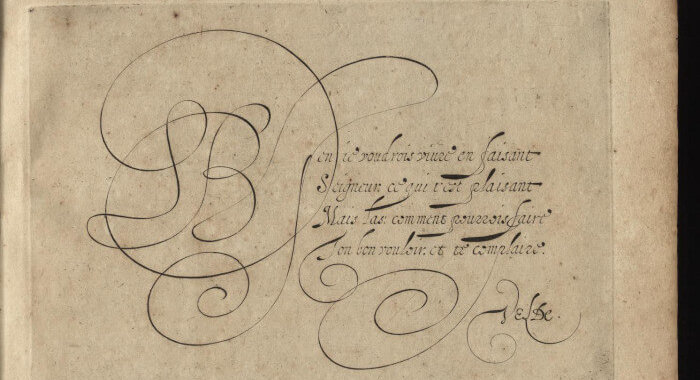 Bien ie voudrois vivre en faisant
Seigneur, ce qui t'est plaisant
Mais las: comment pourrois faire
Ton bon vouloir, et te complaire.
Velde.